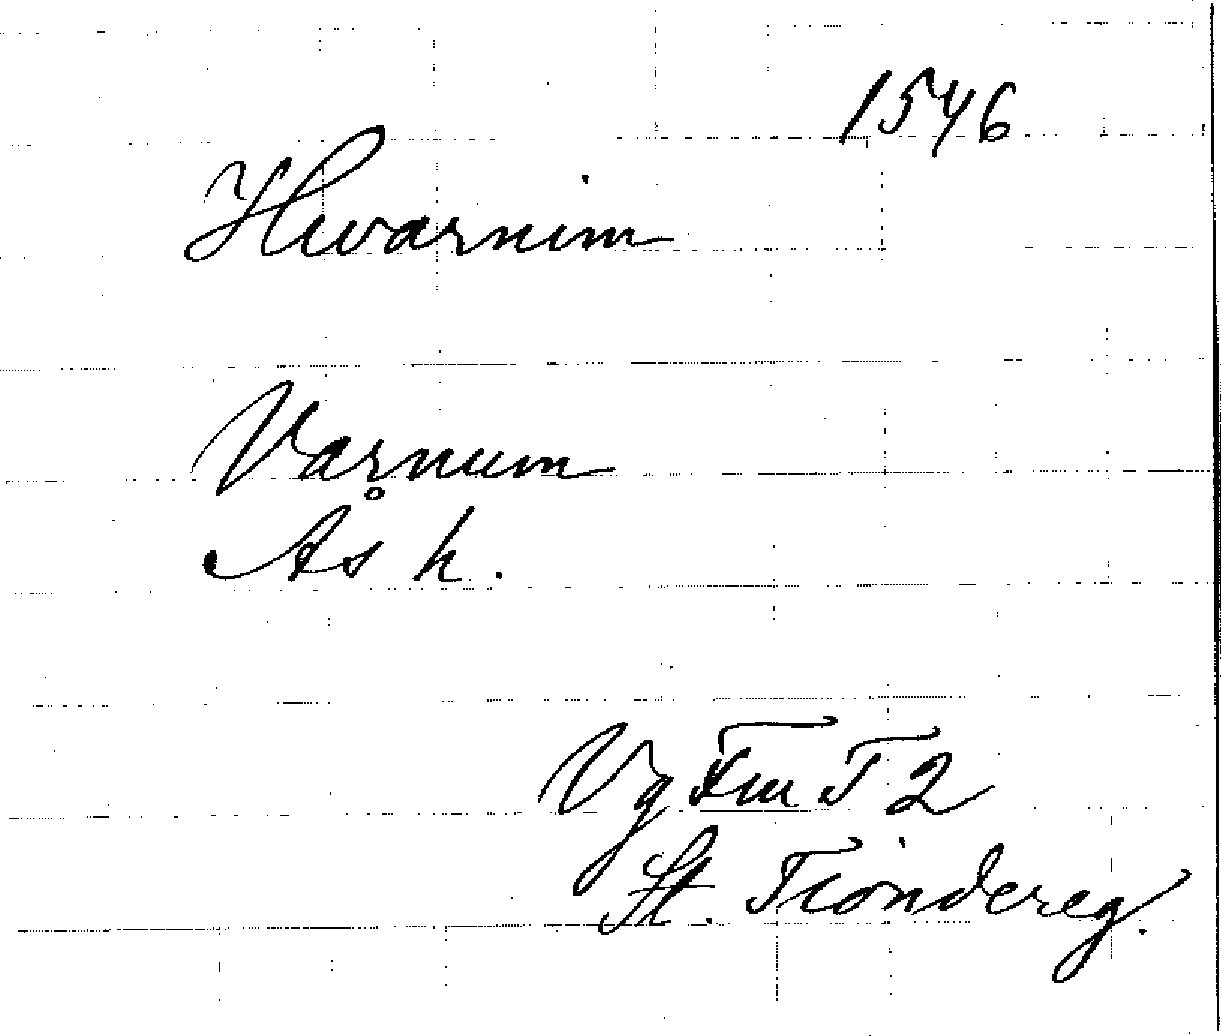 1546
Hwarnim
Varnum
Ås h.
Vg Fmr T 2
St. Tiondereg.